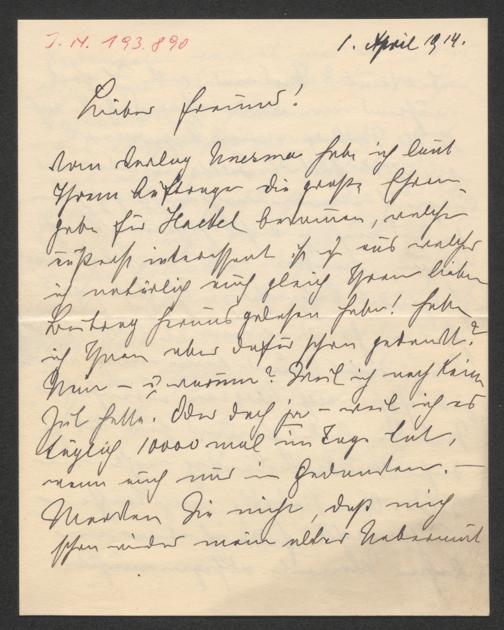 J.N. 193.890
1. April 1914.
Lieber Freund!
Vom Verlag Unesma habe ich laut
Ihrem Auftrage die große Ehren-
gabe für Haeckel bekommen, welche
äußerst interessant ist u aus welcher
ich natürlich auch gleich Ihren lieben
Beitrag herausgelesen habe! Habe
ich Ihnen aber dafür schon gedankt?
Nein – u warum? Weil ich noch keine
Zeit hatte. Oder doch ja – weil ich es
täglich 10000 mal im Tage tat,
wenn auch nur in Gedanken. –
Merken Sie nicht, daß mich
schon wieder mein alter Uebermut